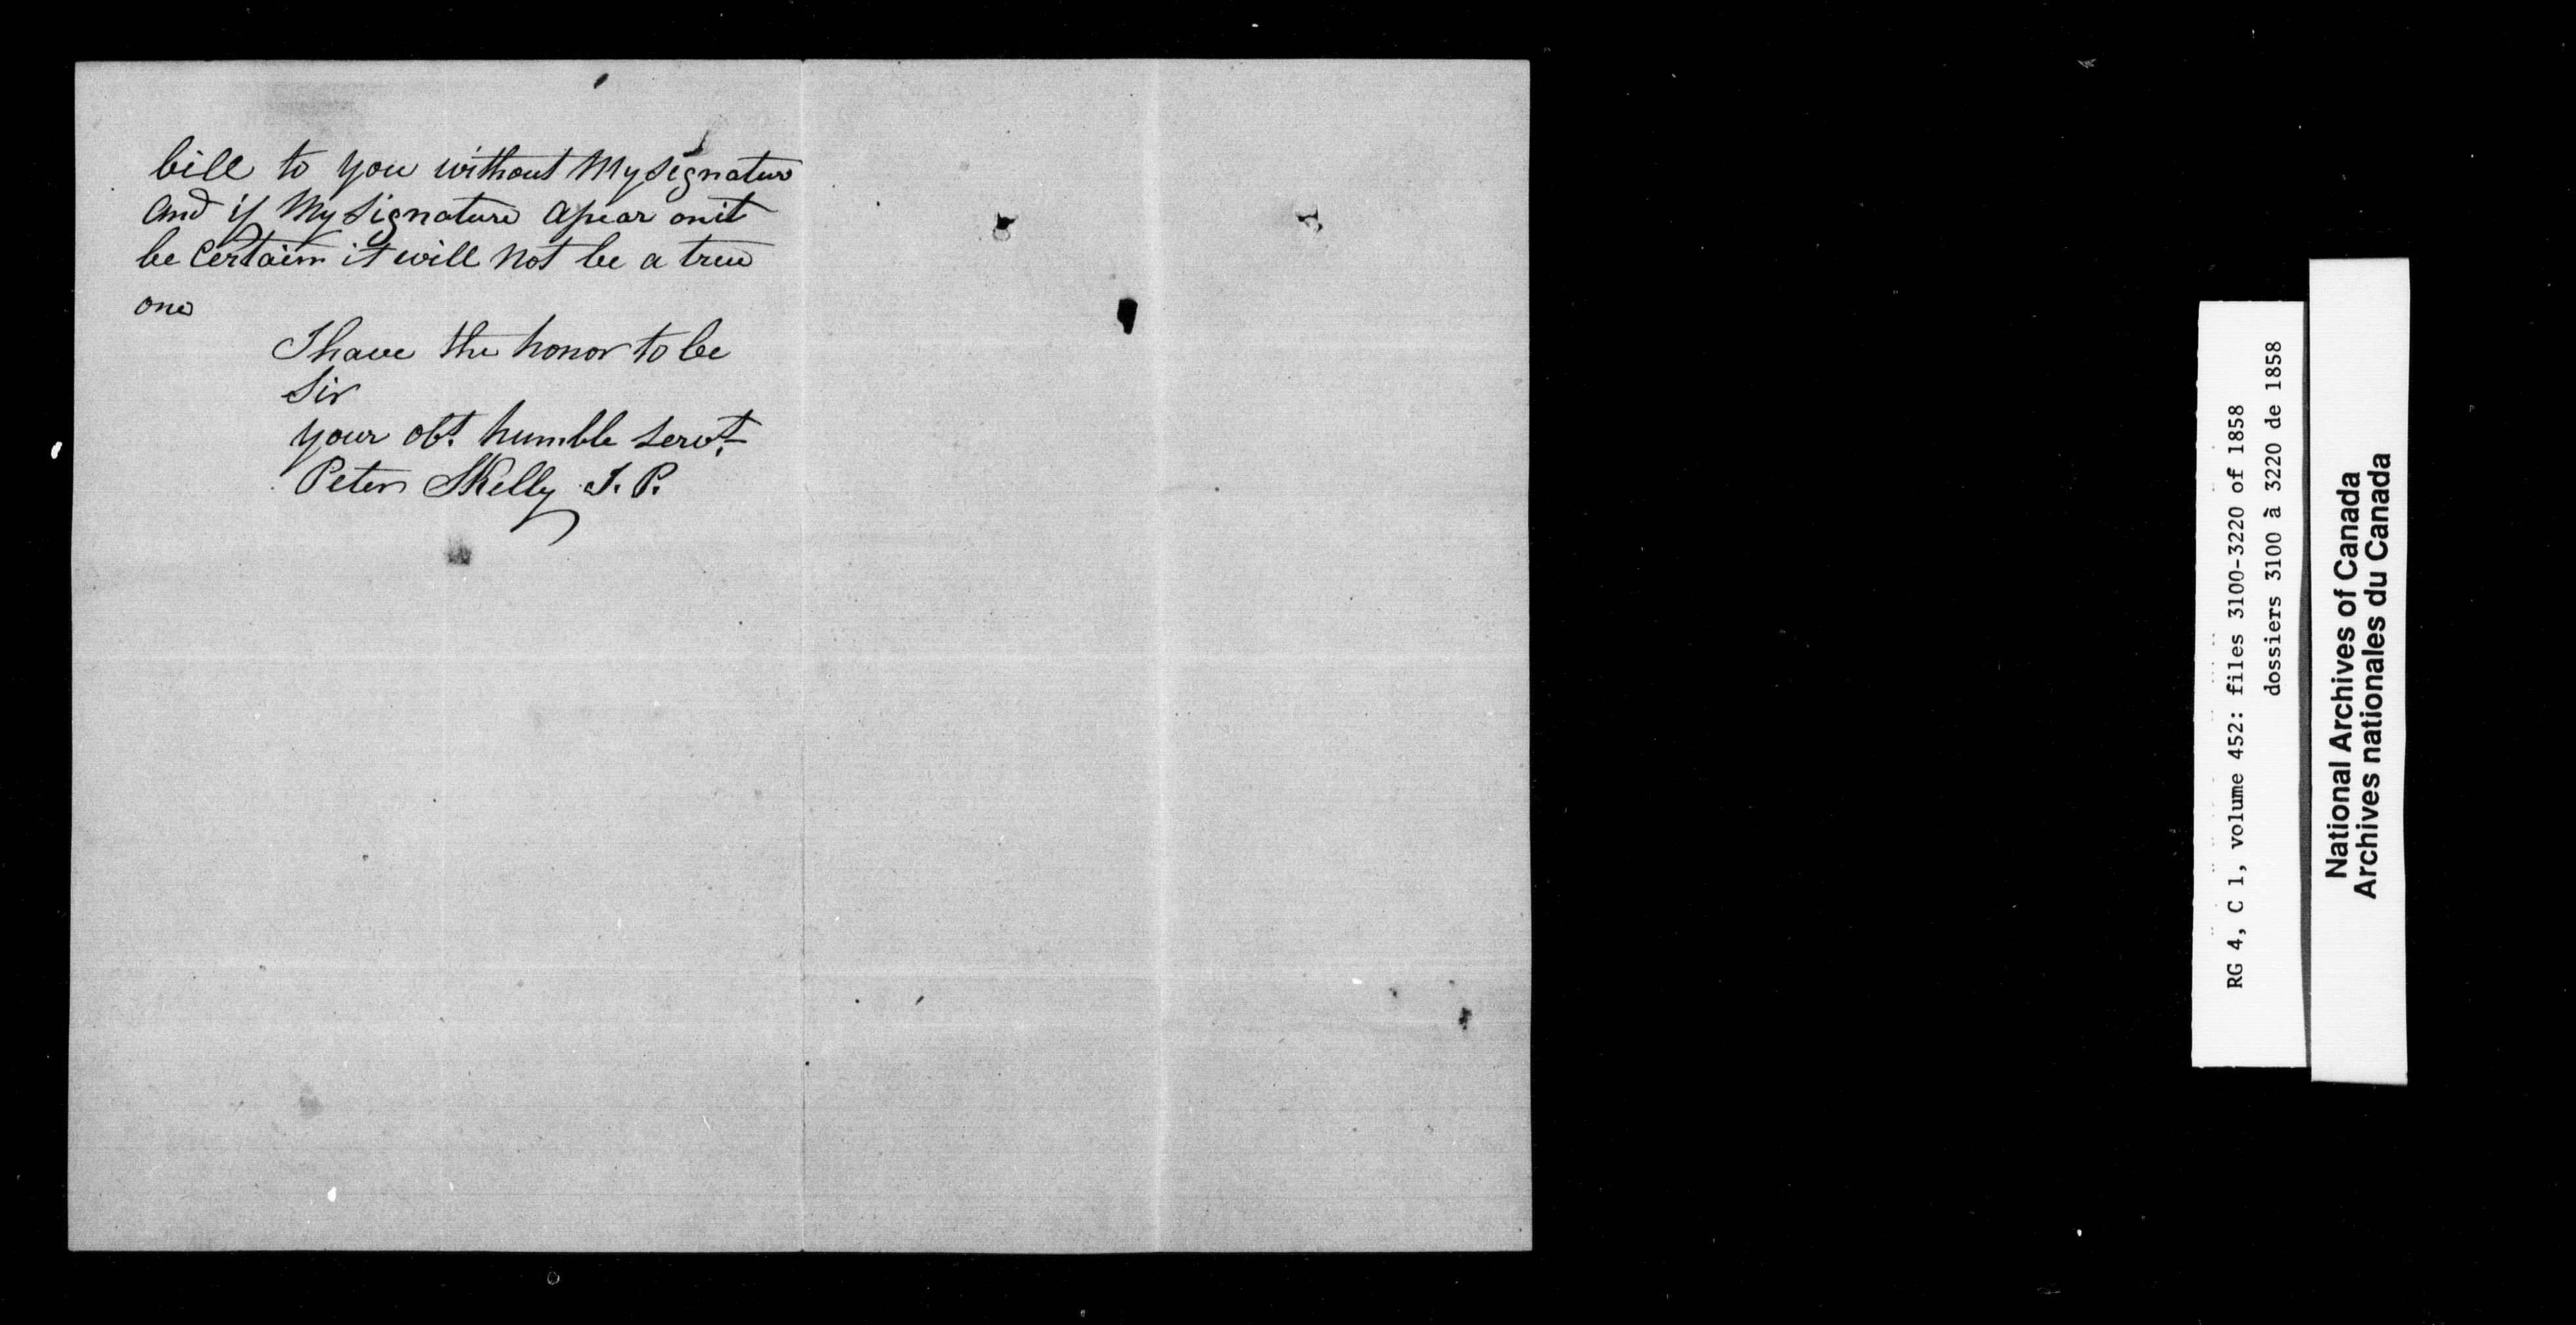 bill to you without My Signature
and if My Signature apear on it
be Certain it will not be a true
one
I have the honor to be
Sir
your obt. humble servt.
Peter Skelly J. P.
RG 4, C 1, volume 452: files 3100-3220 of 1858
dossiers 3100 à 3220 de 1858
National Archives of Canada
Archives nationales du Canada